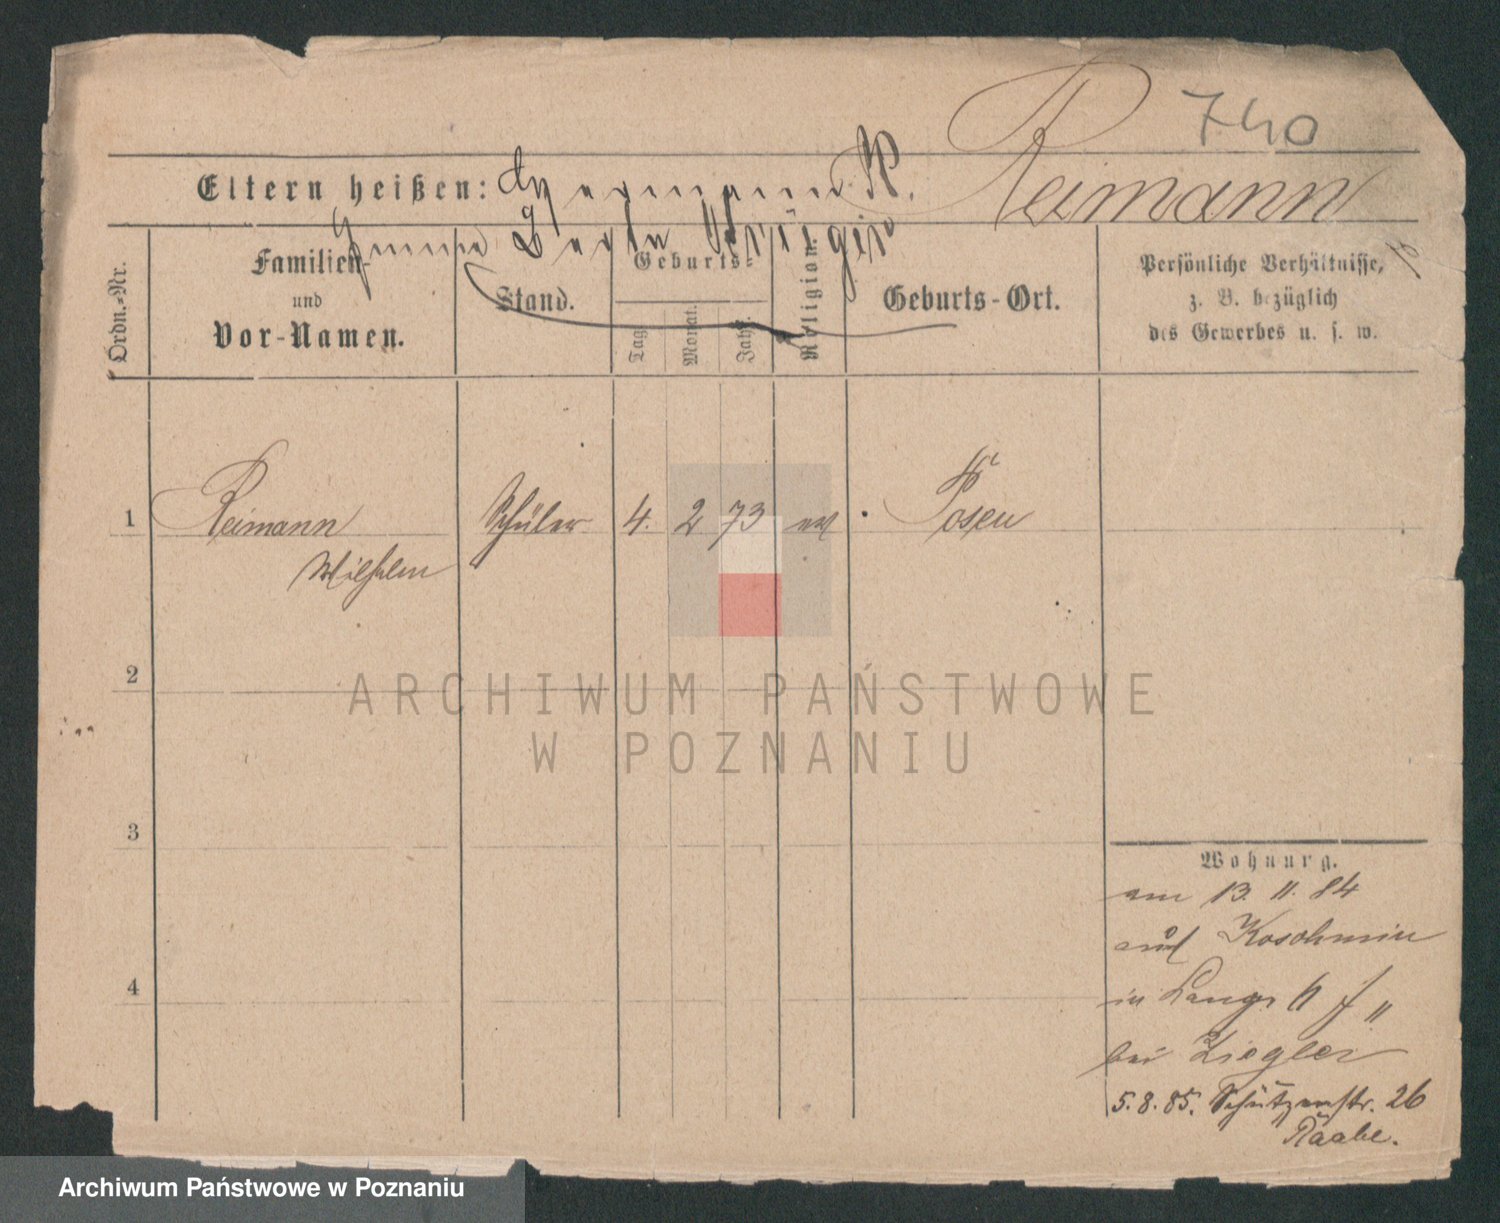 740
Reimann
Eltern heißen: Hermann R.
Familien- und Vor-Namen.
Ordn.-Nr.
Stand.
Geburts-
Tag
Monat.
Jahr.
Religion.
Geburts-Ort.
Persönliche Verhältnisse,
z. B. bezüglich
des Gewerbes u. s. w.
1 Reimann Schüler 4. 2 73 ev Posen
Wilhelm
2
3
4
Wohnung.
am 13. 11. 84
aus Koschmin
in Langestr
bei Ziegler
5. 8. 85. Schützenstr. 26
Raabe.
ARCHIWUM PAŃSTWOWE
W POZNANIU
Archiwum Państwowe w Poznaniu